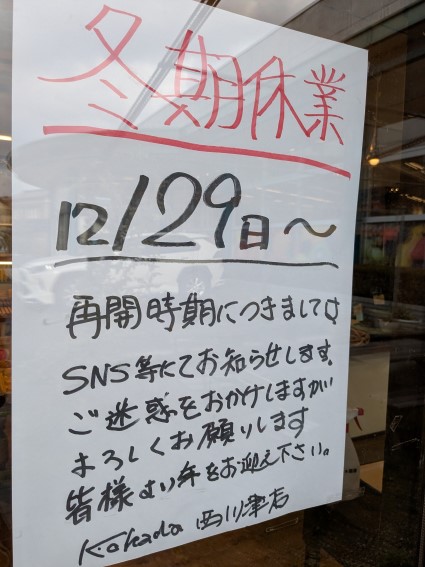 冬期休業
12/29日～
再開時期につきましては
SNS等にてお知らせします。
ご迷惑をおかけしますが
よろしくお願いします
皆様より年をお迎え下さい。
Kohada 西川津店